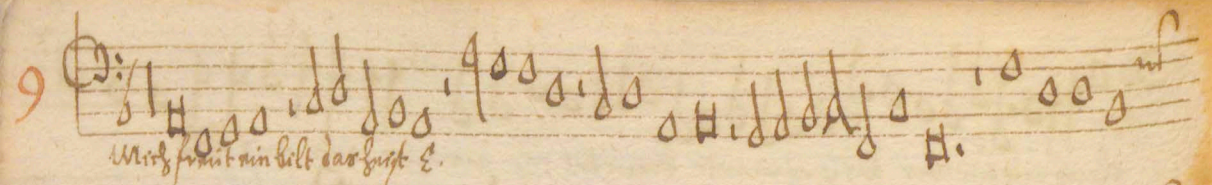 9
Mich freut ein bilt das heist E.